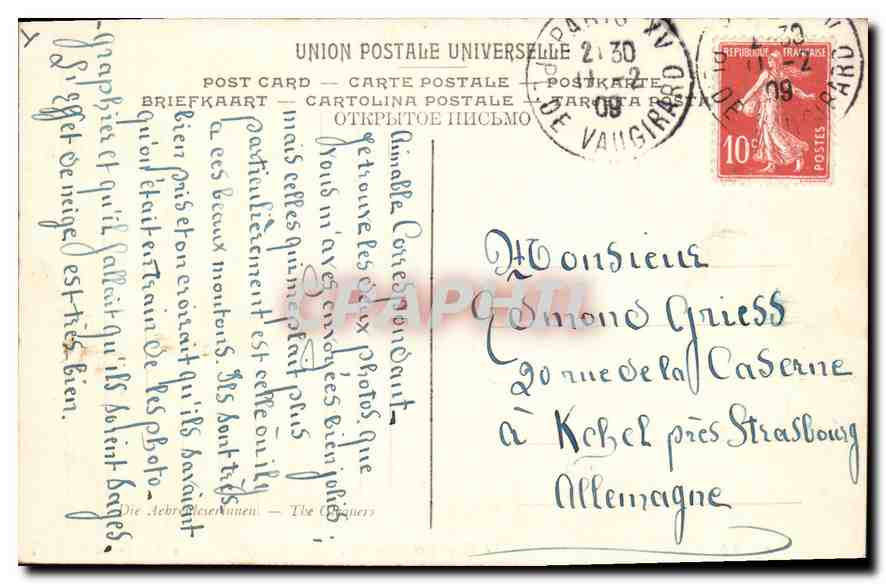 UNION POSTALE UNIVERSELLE
POST CARD — CARTE POSTALE — POSTKARTE
BRIEFKAART — CARTOLINA POSTALE — TARJETA POSTAL
ОТКРЫТОЕ ПИСЬМО
PARIS XV
2 30
11 -2
09
PL. DE VAUGIRARD
30
11 -2
09
REPUBLIQUE FRANÇAISE
10c
POSTES
Aimable Correspondant_
Je trouve les deux photos. que
vous m'aves envoyées bien jolis.
mais celles qui me plait plus
particulièrement est celle où il y
a ces beaux moutons. Ils sont très
bien pris et on croirait qu'ils savaient
qu'on était en train de les photo_
_graphier et qu'il fallait qu'ils soient sages.
L'effet de neige est très bien.
Monsieur
Edmond Griess
20 rue de la Caserne
à Kehel près Strasbourg
Allemagne
CPAPHIL
Die Aehrenleserinnen. — The Gleaners